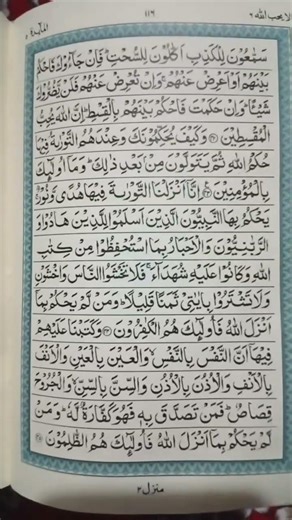 لا يحب الله ٦ ١١٦ المآىدة ٥
سَمّٰعُوْنَ لِلْكَذِبِ اَكّٰلُوْنَ لِلسُّحْتِ ؕ فَاِنْ جَآءُوْكَ فَاحْكُمْ
بَيْنَهُمْ اَوْ اَعْرِضْ عَنْهُمْ ۚ وَاِنْ تُعْرِضْ عَنْهُمْ فَلَنْ يَّضُرُّوْكَ
شَيْـًٔا ؕ وَاِنْ حَكَمْتَ فَاحْكُمْ بَيْنَهُمْ بِالْقِسْطِ ؕ اِنَّ اللّٰهَ يُحِبُّ
الْمُقْسِطِيْنَ ﴿۴۲﴾ وَكَيْفَ يُحَكِّمُوْنَكَ وَعِنْدَهُمُ التَّوْرٰىةُ فِيْهَا
حُكْمُ اللّٰهِ ثُمَّ يَتَوَلَّوْنَ مِنْۢ بَعْدِ ذٰلِكَ ؕ وَمَاۤ اُولٰٓئِكَ
بِالْمُؤْمِنِيْنَ ﴿۴۳﴾ اِنَّاۤ اَنْزَلْنَا التَّوْرٰىةَ فِيْهَا هُدًى وَّنُوْرٌ ۚ
يَحْكُمُ بِهَا النَّبِيُّوْنَ الَّذِيْنَ اَسْلَمُوْا لِلَّذِيْنَ هَادُوْا وَ
الرَّبّٰنِيُّوْنَ وَالْاَحْبَارُ بِمَا اسْتُحْفِظُوْا مِنْ كِتٰبِ
اللّٰهِ وَكَانُوْا عَلَيْهِ شُهَدَآءَ ۚ فَلَا تَخْشَوُا النَّاسَ وَاخْشَوْنِ
وَلَا تَشْتَرُوْا بِاٰيٰتِيْ ثَمَنًا قَلِيْلًا ؕ وَمَنْ لَّمْ يَحْكُمْ بِمَاۤ
اَنْزَلَ اللّٰهُ فَاُولٰٓئِكَ هُمُ الْكٰفِرُوْنَ ﴿۴۴﴾ وَكَتَبْنَا عَلَيْهِمْ
فِيْهَاۤ اَنَّ النَّفْسَ بِالنَّفْسِ ۙ وَالْعَيْنَ بِالْعَيْنِ وَالْاَنْفَ
بِالْاَنْفِ وَالْاُذُنَ بِالْاُذُنِ وَالسِّنَّ بِالسِّنِّ ۙ وَالْجُرُوْحَ
قِصَاصٌ ؕ فَمَنْ تَصَدَّقَ بِهٖ فَهُوَ كَفَّارَةٌ لَّهٗ ؕ وَمَنْ
لَّمْ يَحْكُمْ بِمَاۤ اَنْزَلَ اللّٰهُ فَاُولٰٓئِكَ هُمُ الظّٰلِمُوْنَ ﴿۴۵﴾
منزل ٢